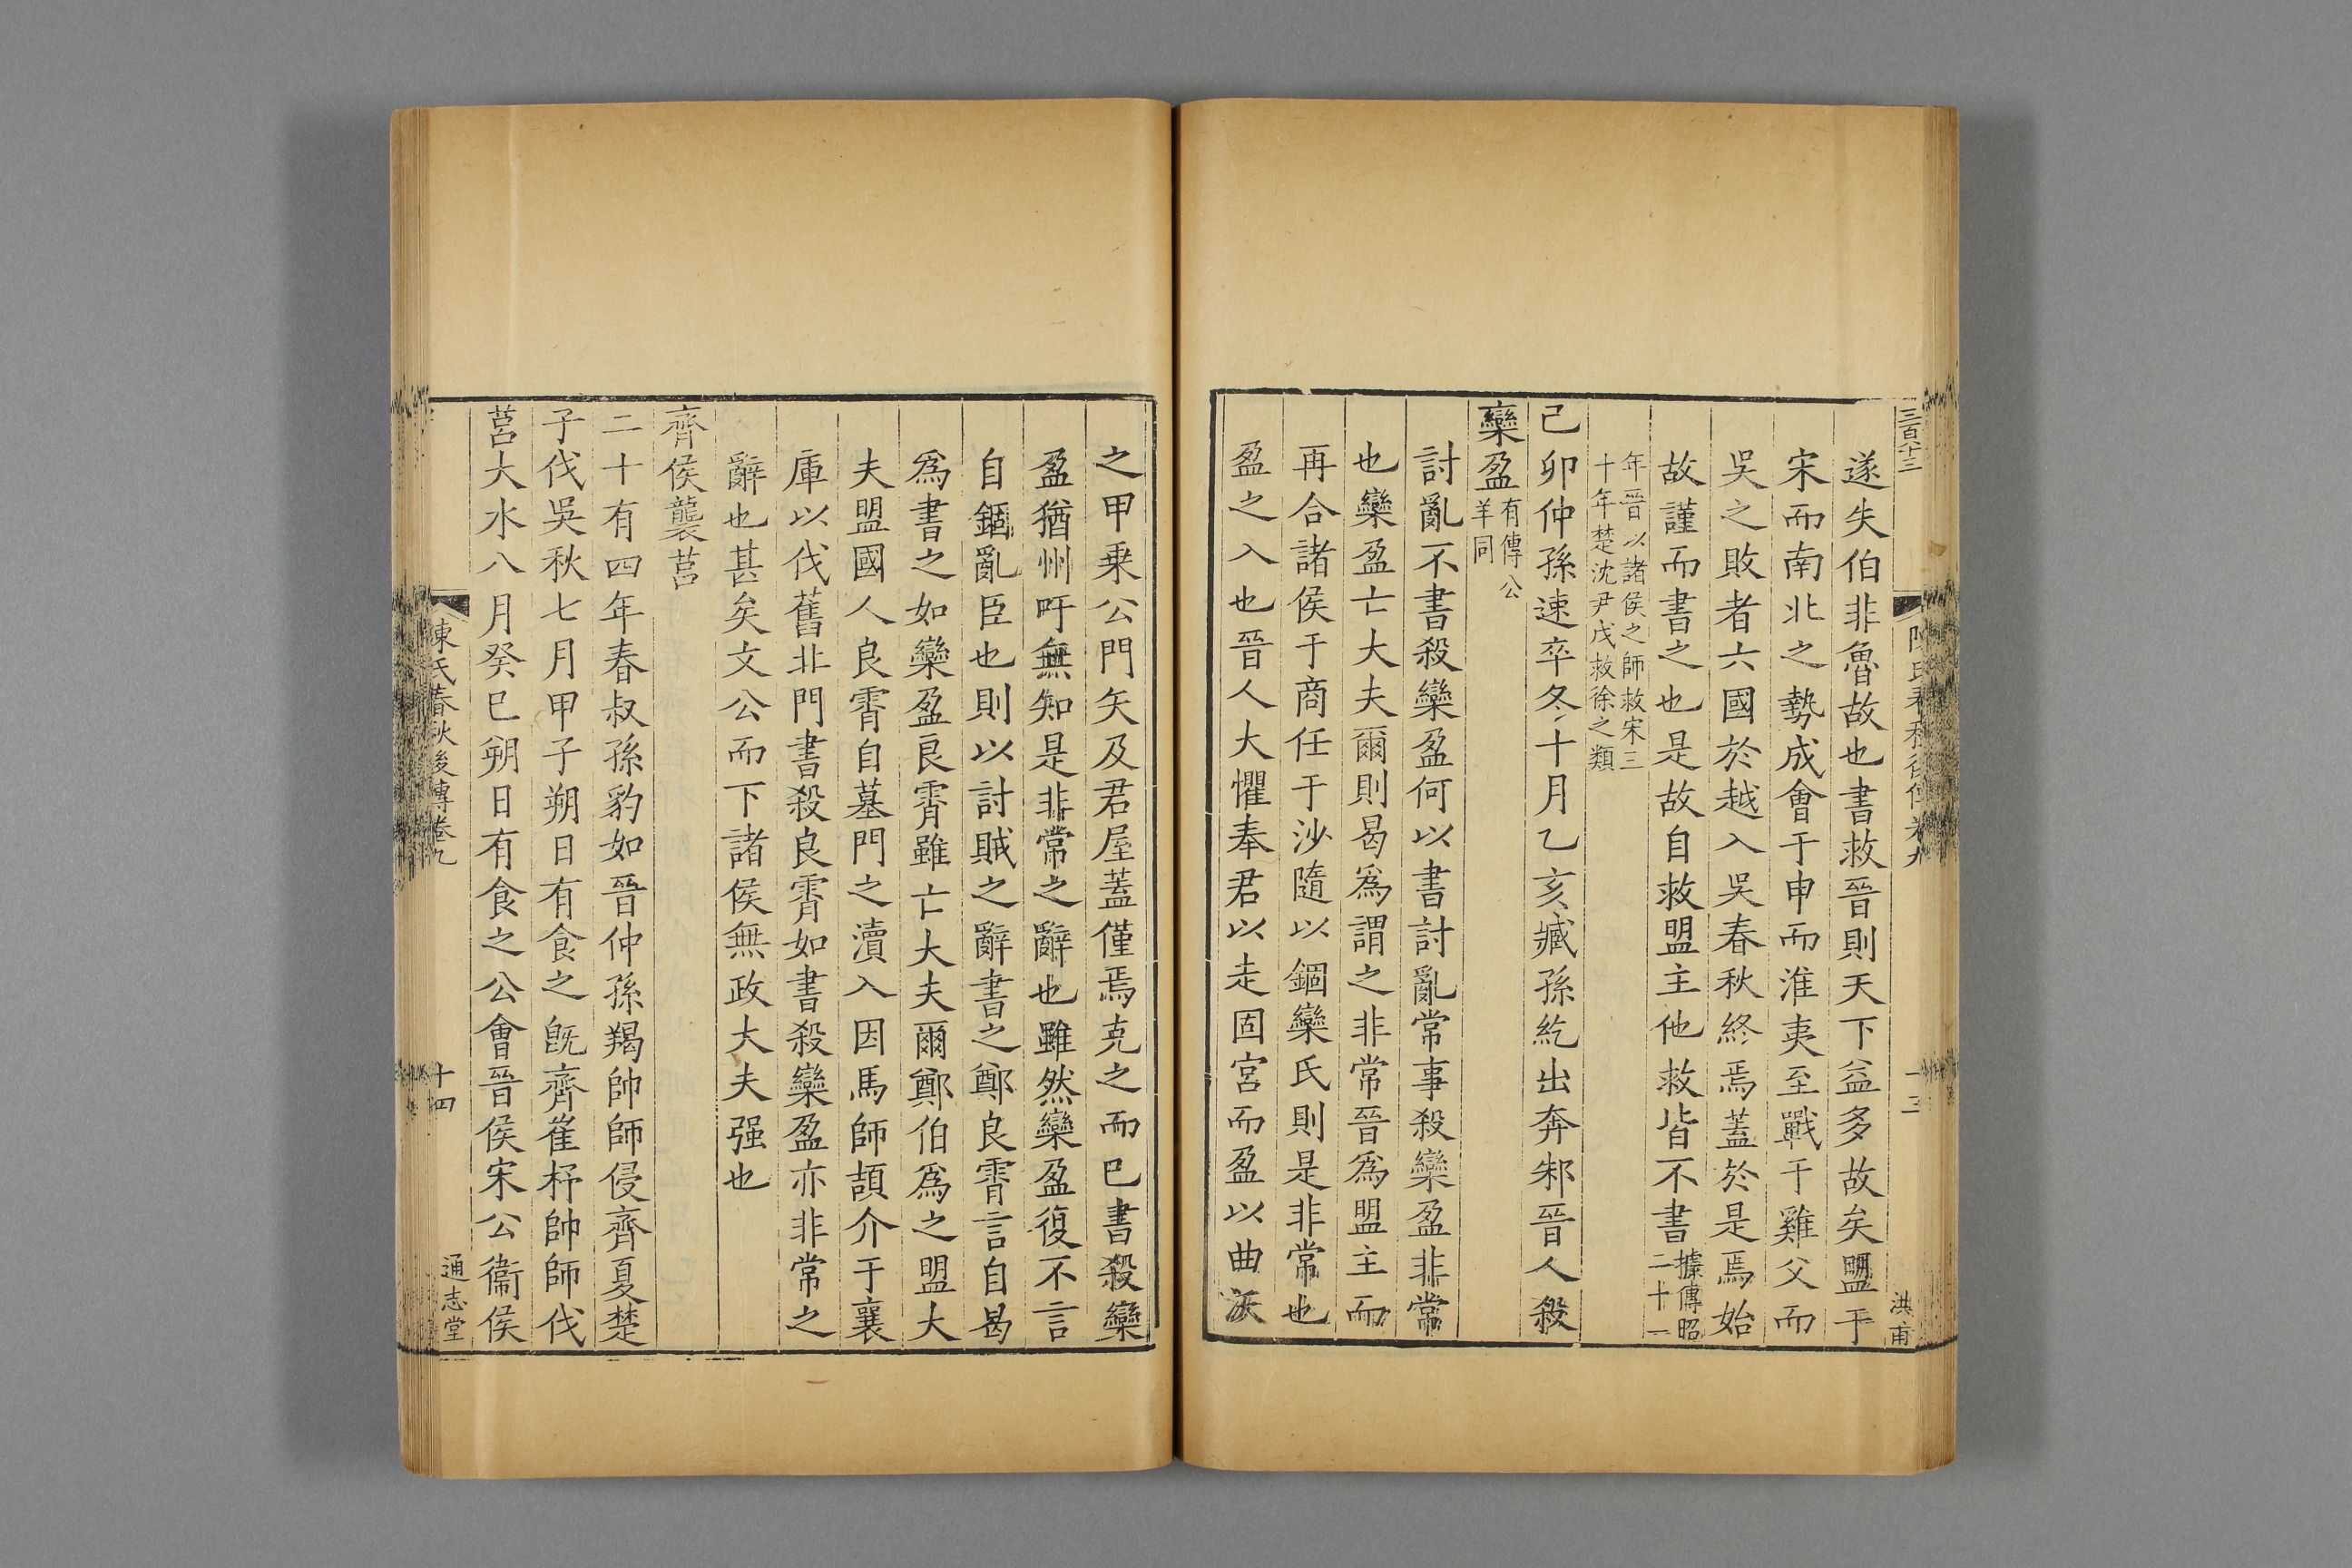 三百八十三
陳氏春秋後傳卷九
十三
洪甫
遂失伯非魯故也書救晉則天下益多故矣盟于
宋而南北之勢成會于申而淮夷至戰于雞父而
吳之敗者六國於越入吳春秋終焉蓋於是焉始
故謹而書之也是故自救盟主他救皆不書據傳昭二十一
年晉以諸侯之師救宋三
十年楚沈尹戌救徐之類
己卯仲孫速卒冬十月乙亥臧孫紇出奔邾晉人殺
欒盈有傳公羊同
討亂不書殺欒盈何以書討亂常事殺欒盈非常
也欒盈亡大夫爾則曷爲謂之非常晉爲盟主而
再合諸侯于商任于沙隨以錮欒氏則是非常也
盈之入也晉人大懼奉君以走固宮而盈以曲沃
之甲乗公門矢及君屋蓋僅焉克之而已書殺欒
盈猶州吁無知是非常之辭也雖然欒盈復不言
自錮亂臣也則以討賊之辭書之鄭良霄言自曷
爲書之如欒盈良霄雖亡大夫爾鄭伯爲之盟大
夫盟國人良霄自墓門之瀆入因馬師頡介于襄
庫以伐舊北門書殺良霄如書殺欒盈亦非常之
辭也甚矣文公而下諸侯無政大夫强也
齊侯襲莒
二十有四年春叔孫豹如晉仲孫羯帥師侵齊夏楚
子伐吳秋七月甲子朔日有食之旣齊崔杼帥師伐
莒大水八月癸巳朔日有食之公會晉侯宋公衞侯
陳氏春秋後傳卷九
十四
通志堂